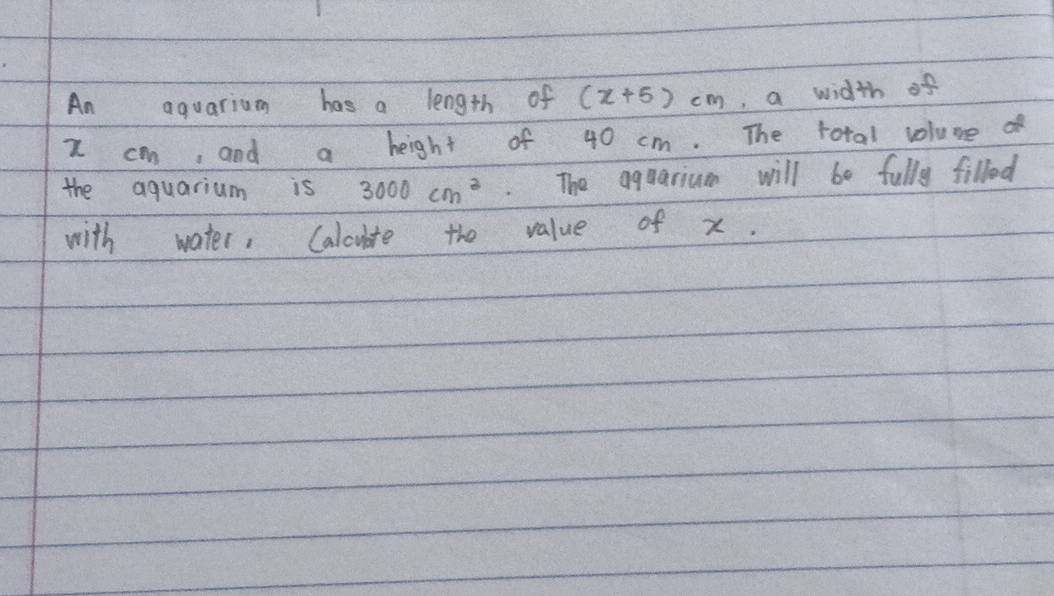 An aquarium has a length of (x+5) cm, a width of
x cm, and a height of 40 cm. The total volume of
the aquarium is 3000 cm². The aquarium will be fully filled
with water. Calculate the value of x.